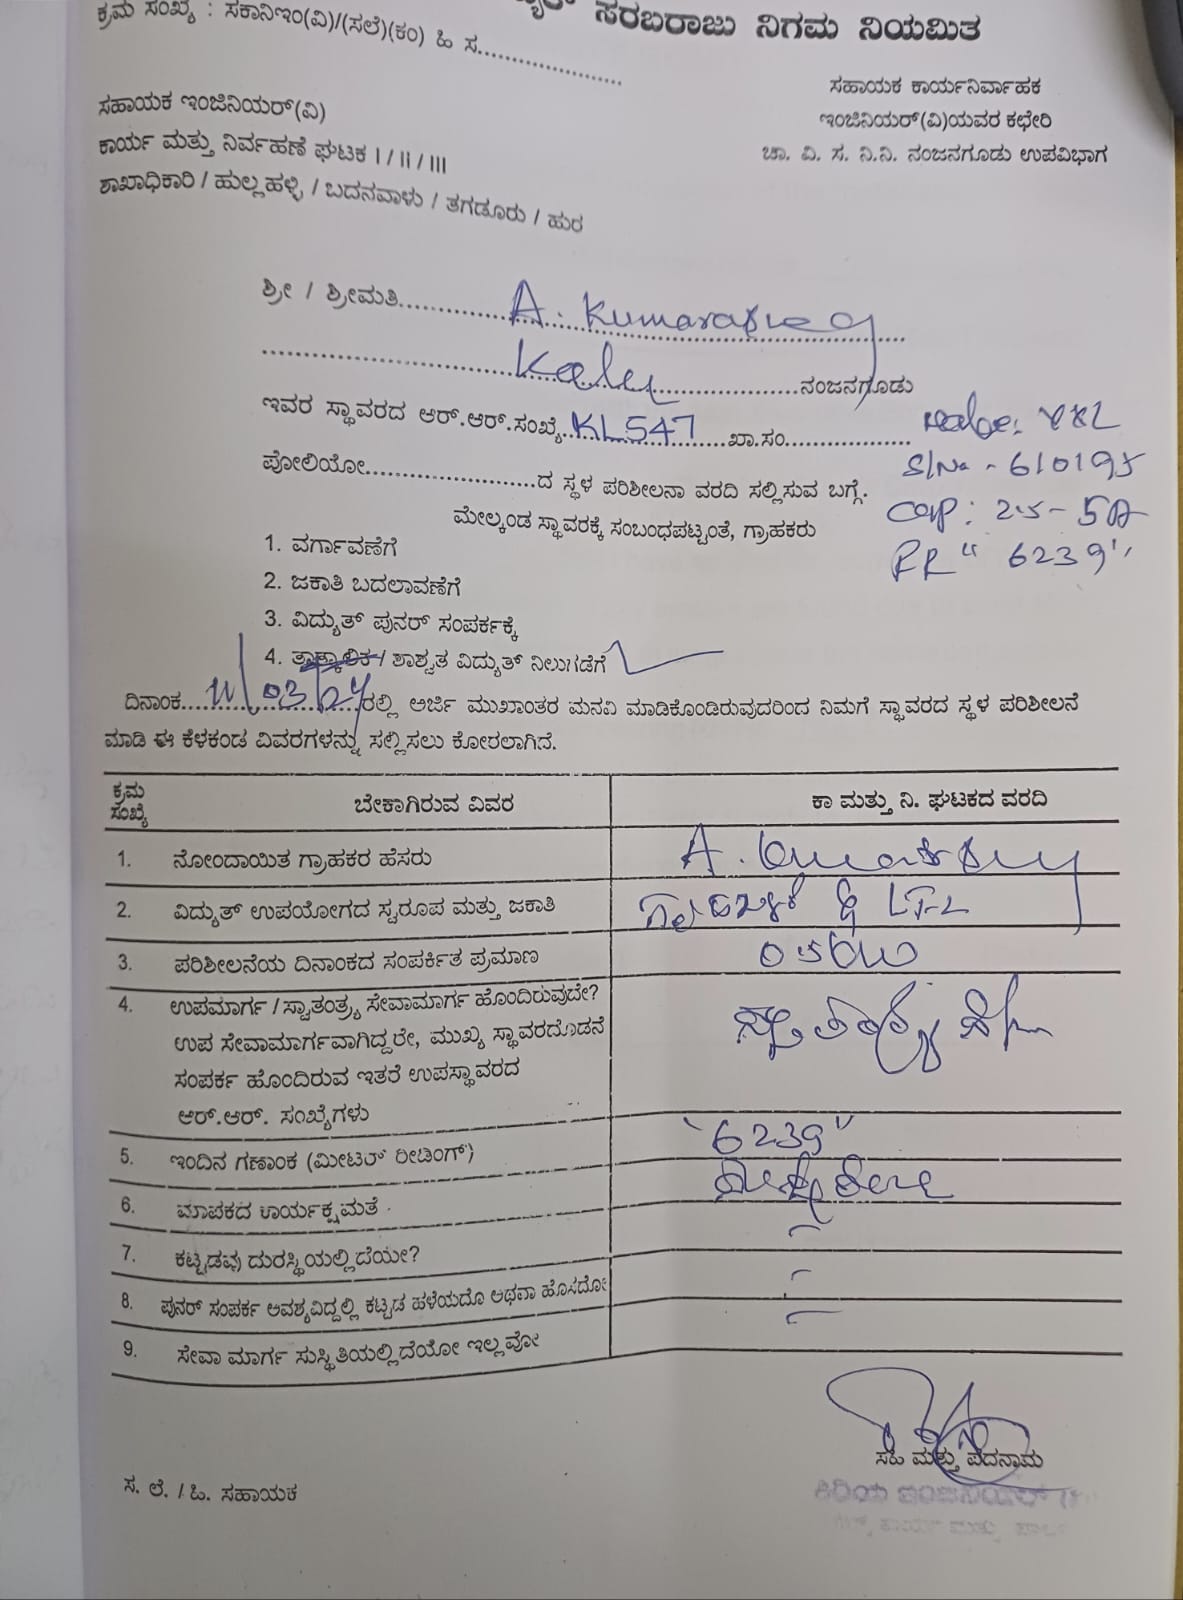 ಕ್ರಮ ಸಂಖ್ಯೆ : ಸಕಾನಿಇಂ(ವಿ)/(ಸಲೆ)(ಕಂ) ಹಿ ಸ....................
ಸರಬರಾಜು ನಿಗಮ ನಿಯಮಿತ
ಸಹಾಯಕ ಇಂಜಿನಿಯರ್(ವಿ)
ಕಾರ್ಯ ಮತ್ತು ನಿರ್ವಹಣೆ ಘಟಕ I / II / III
ಶಾಖಾಧಿಕಾರಿ / ಹುಲ್ಲಹಳ್ಳಿ / ಬದನವಾಳು / ತಗಡೂರು / ಹುರ
ಸಹಾಯಕ ಕಾರ್ಯನಿರ್ವಾಹಕ
ಇಂಜಿನಿಯರ್(ವಿ)ಯವರ ಕಛೇರಿ
ಚಾ. ವಿ. ಸ. ನಿ.ನಿ. ನಂಜನಗೂಡು ಉಪವಿಭಾಗ
ಶ್ರೀ / ಶ್ರೀಮತಿ.................... A.
....................ನಂಜನಗೂಡು
ಇವರ ಸ್ಥಾವರದ ಆರ್.ಆರ್.ಸಂಖ್ಯೆ..KL547....ಖಾ.ಸಂ..................
S/No - 610195
Cap: 2.5 - 5A
FR "6239"
ಪೋಲಿಯೋ.........................ದ ಸ್ಥಳ ಪರಿಶೀಲನಾ ವರದಿ ಸಲ್ಲಿಸುವ ಬಗ್ಗೆ.
ಮೇಲ್ಕಂಡ ಸ್ಥಾವರಕ್ಕೆ ಸಂಬಂಧಪಟ್ಟಂತೆ, ಗ್ರಾಹಕರು
1. ವರ್ಗಾವಣೆಗೆ
2. ಜಕಾತಿ ಬದಲಾವಣೆಗೆ
3. ವಿದ್ಯುತ್ ಪುನರ್ ಸಂಪರ್ಕಕ್ಕೆ
4. ತಾತ್ಕಾಲಿಕ / ಶಾಶ್ವತ ವಿದ್ಯುತ್ ನಿಲುಗಡೆಗೆ
ದಿನಾಂಕ....................ರಲ್ಲಿ ಅರ್ಜಿ ಮುಖಾಂತರ ಮನವಿ ಮಾಡಿಕೊಂಡಿರುವುದರಿಂದ ನಿಮಗೆ ಸ್ಥಾವರದ ಸ್ಥಳ ಪರಿಶೀಲನೆ
ಮಾಡಿ ಈ ಕೆಳಕಂಡ ವಿವರಗಳನ್ನು ಸಲ್ಲಿಸಲು ಕೋರಲಾಗಿದೆ.
ಕ್ರಮ ಸಂಖ್ಯೆ ಬೇಕಾಗಿರುವ ವಿವರ ಕಾ ಮತ್ತು ನಿ. ಘಟಕದ ವರದಿ
1. ನೋಂದಾಯಿತ ಗ್ರಾಹಕರ ಹೆಸರು A.
2. ವಿದ್ಯುತ್ ಉಪಯೋಗದ ಸ್ವರೂಪ ಮತ್ತು ಜಕಾತಿ
3. ಪರಿಶೀಲನೆಯ ದಿನಾಂಕದ ಸಂಪರ್ಕಿತ ಪ್ರಮಾಣ
4. ಉಪಮಾರ್ಗ / ಸ್ವಾತಂತ್ರ್ಯ ಸೇವಾಮಾರ್ಗ ಹೊಂದಿರುವುದೇ?
ಉಪ ಸೇವಾಮಾರ್ಗವಾಗಿದ್ದರೇ, ಮುಖ್ಯ ಸ್ಥಾವರದೊಡನೆ
ಸಂಪರ್ಕ ಹೊಂದಿರುವ ಇತರೆ ಉಪಸ್ಥಾವರದ
ಆರ್.ಆರ್. ಸಂಖ್ಯೆಗಳು
5. ಇಂದಿನ ಗಣಾಂಕ (ಮೀಟರ್ ರೀಡಿಂಗ್) "6239"
6. ಮಾಪಕದ ಕಾರ್ಯಕ್ಷಮತೆ
7. ಕಟ್ಟಡವು ದುರಸ್ಥಿಯಲ್ಲಿದೆಯೇ?
8. ಪುನರ್ ಸಂಪರ್ಕ ಅವಶ್ಯವಿದ್ದಲ್ಲಿ ಕಟ್ಟಡ ಹಳೆಯದೊ ಅಥವಾ ಹೊಸದೋ
9. ಸೇವಾ ಮಾರ್ಗ ಸುಸ್ಥಿತಿಯಲ್ಲಿದೆಯೋ ಇಲ್ಲವೋ
ಸಹಿ ಮತ್ತು ಪದನಾಮ
ಸ. ಲೆ. / ಹಿ. ಸಹಾಯಕ
ಕಿರಿಯ ಇಂಜಿನಿಯರ್